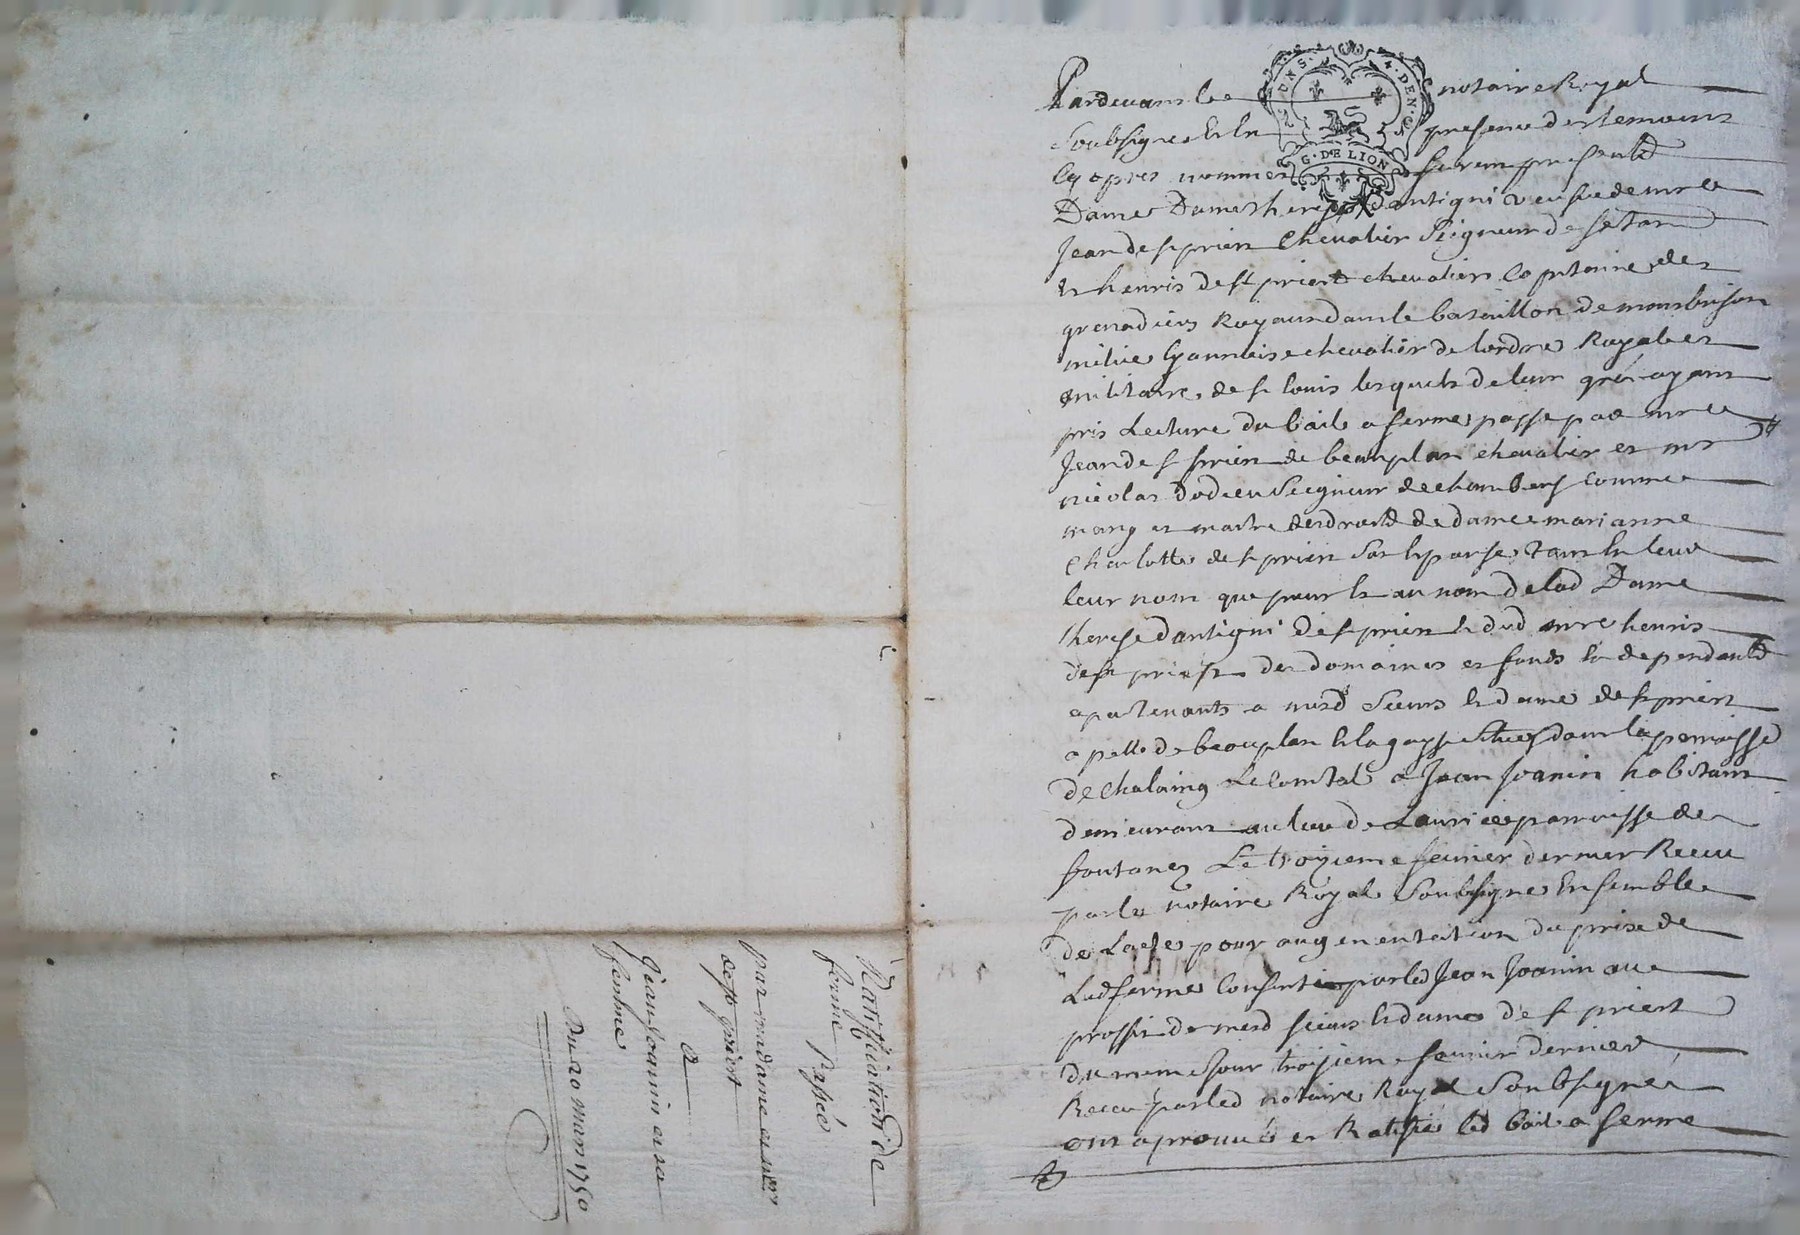 Pardevans le notaire Royal
Soubsigne Et En presence des temoins
Cy apres nommes furent presents
Dame Dame therese dantigni veufve de mre
Jean de st priest Chevalier Seigneur de
et henris de st priest chevalier Capitaine des
grenadiers Royaux dans le bataillon de monbrison
milice lyonnaise chevalier de lordre Royal et
militaire de st louis lesquels de leur gré ayant
pris Lecture du bail a ferme passe par mre
Jean de st priest de beauplan chevalier et mr
nicolas dodieu Seigneur de chambery comme
mary et maitre des droits de dame marianne
Charlotte de st priest son Epouse tant En leur
leur nom que pour Et au nom de lad Dame
therese dantigni de st priest Et dud mre henris
de st priest des domaines et fonds En dependants
apartenants a mesd Sieurs Et dame de st priest
apelle de beauplan Et la Situes dans la parroisse
de chalaing Le Comtal a Jean Joanin habitant
demeurant au lieu de parroisse de
fontanes Le troizieme fevrier dernier Receu
par le notaire Royal Soubsigne Ensemble
de Lacte pour augmentation du prix de
Lad ferme Consenti par led Jean Joanin au
proffit de mesd sieurs Et dame de st priest
du meme Jour troisieme fevrier dernier
Receu par led notaire Royal Soubsigne
ont aprouvé et Ratifié led bail a ferme
Ratiffication de
ferme Passée
par madame
de st priest
a
Jean Joanin et sa
femme
Du 20 mars 1750
G. DE LION